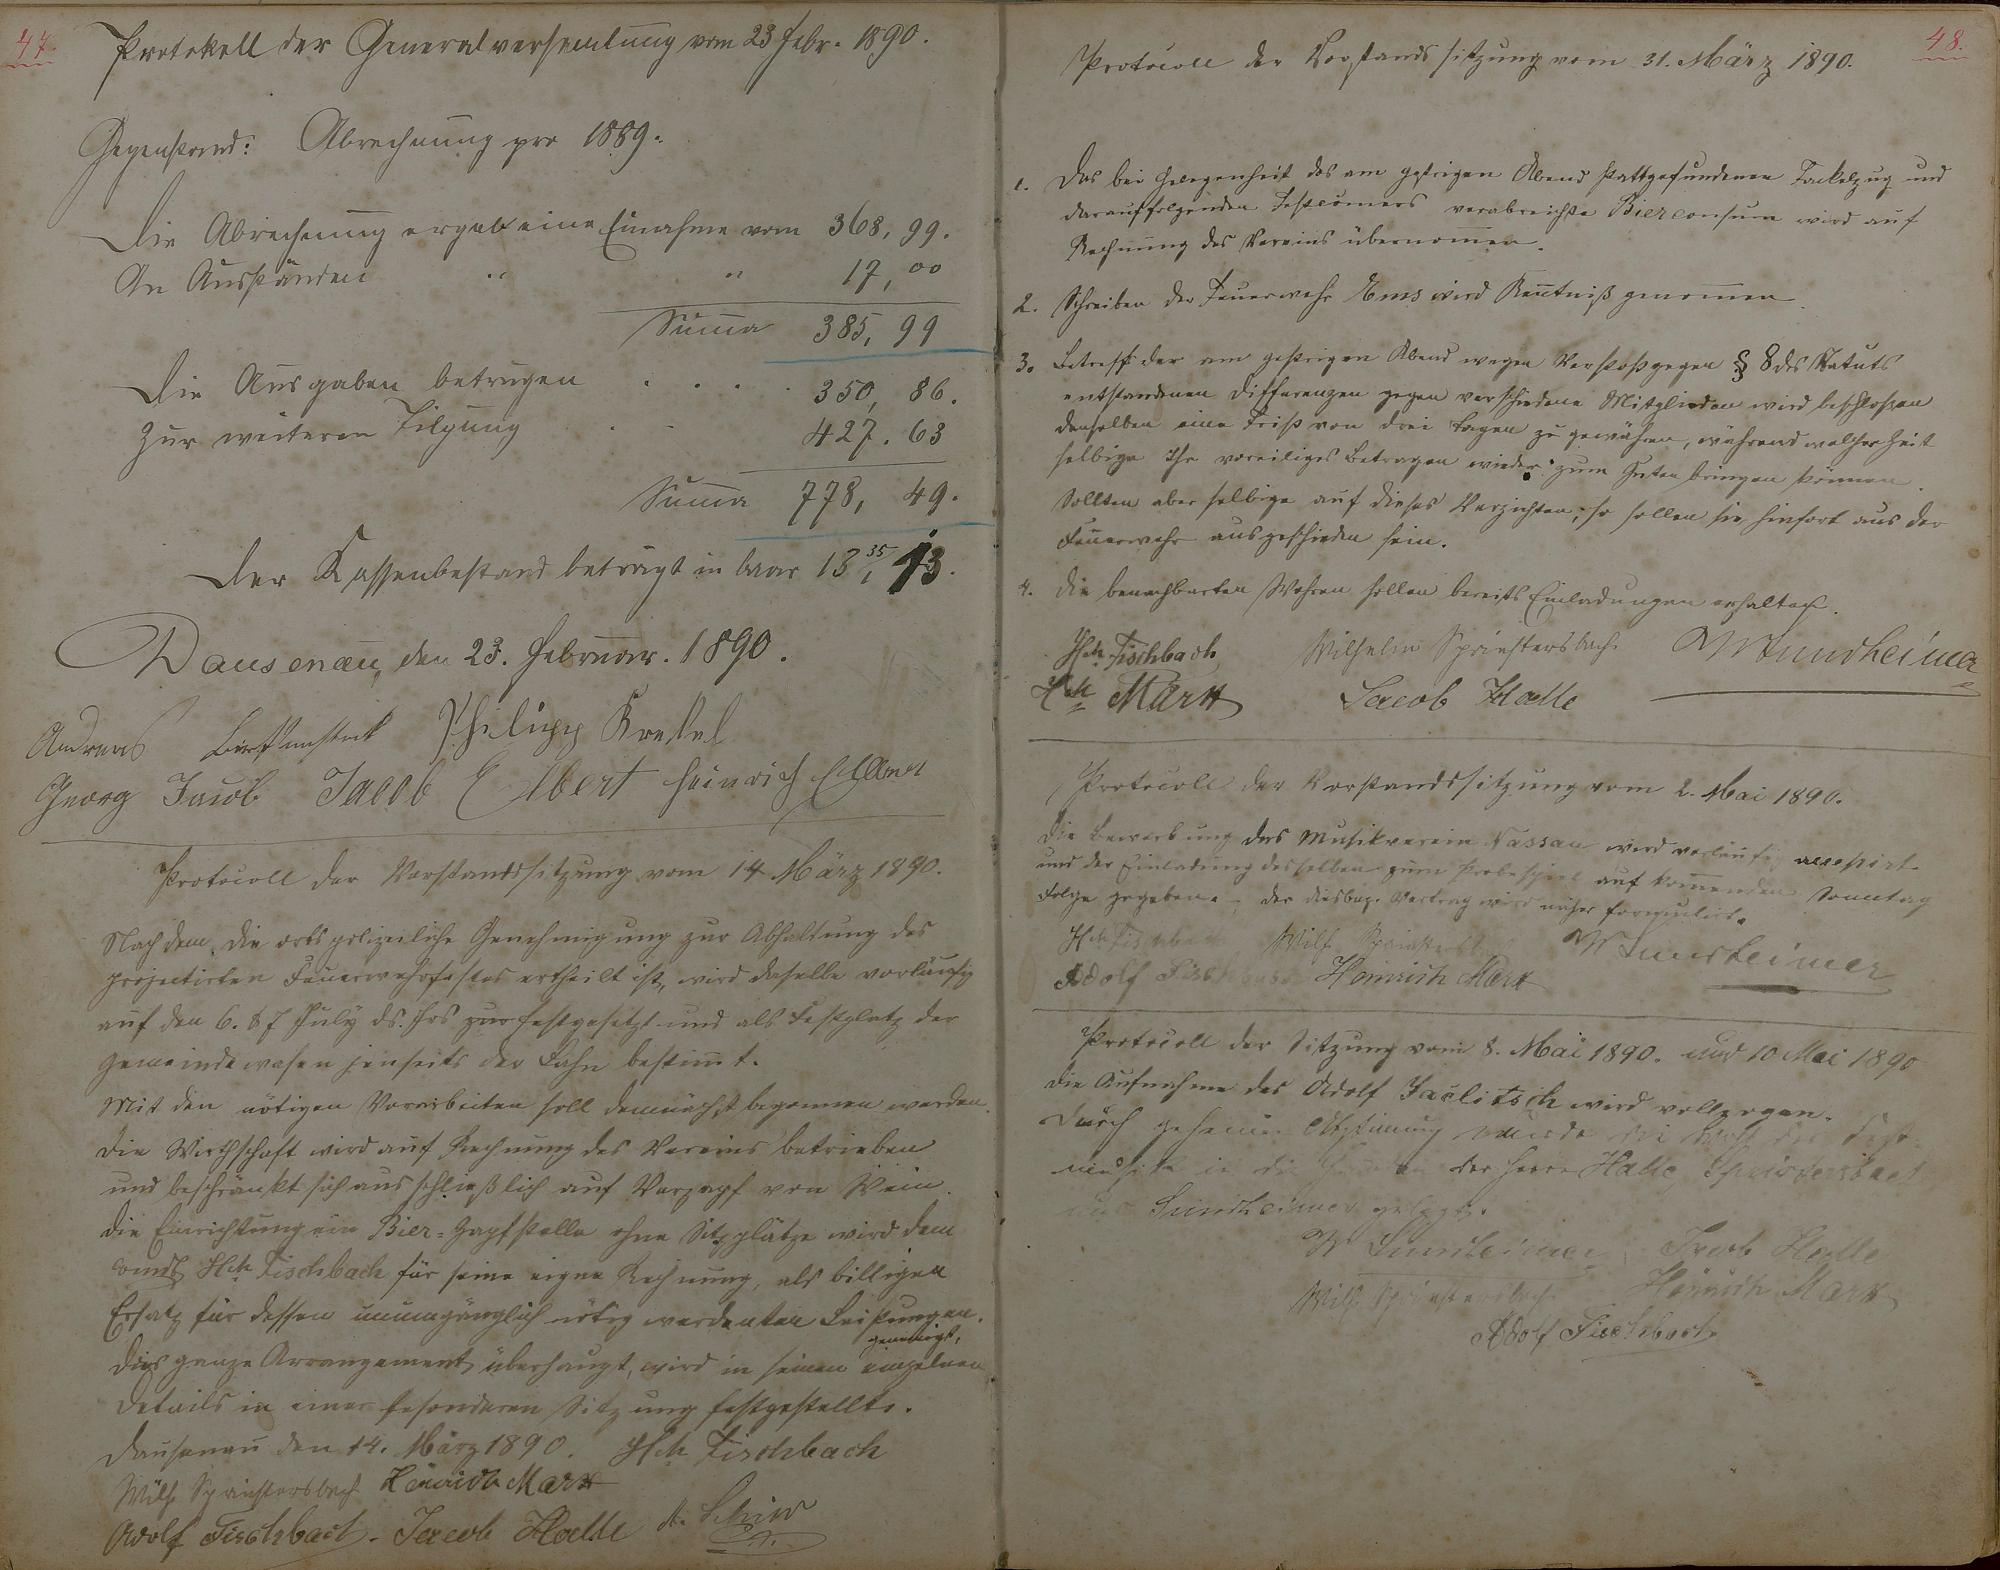 47.
Protokoll der Generalversamlung vom 23 Febr. 1890.
Gegenstand: Abrechnung pro 1889.
Die Abrechnung ergab eine Einahme vom 368,99.
An Ausständen " " 17,00
Suma 385,99
Die Ausgaben betrugen . . . . 350,86.
Zur weiteren Tilgung . . 427.63
Suma 778,49.
Der Kassenbestand beträgt in baar 13
Dausenau, den 23. Februar. 1890.
Andreas Philipp
Georg Jacob Jacob Elbert Heinrich
Protocoll der Vorstandssitzung vom 14 März 1890.
Nachdem die ortspolizeiliche Genehmigung zur Abhaltung des
projectirten Feuerwehrfestes ertheilt ist, wird daselbe vorläufig
auf den 6. & 7 July ds. Jrs festgesetzt und als Festplatz der
Gemeindewasen jenseits der Lahn bestimt.
Mit den nötigen Vorarbeiten soll demnächst begonnen werden.
Die Wirthschaft wird auf Rechnung des Vereins betrieben
und beschränkt sich ausschließlich auf Verzapf von Wein.
Die Einrichtung ein Bier-Zapfstelle ohne Sitzplätze wird dem
Hch Fischbach für seine eigne Rechnung, als billigen
Ersatz für dessen unumgänglich nötig werdenden Leistungen.
genemigt,
Das ganze Arrangement überhaupt, wird in seinen einzelnen
Details in einer besonderen Sitzung festgestellt.
Dausenau den 14. März 1890. Hch Fischbach
Wilh. Spriestersbach Heinrich Marx
Adolf Fischbach. Jacob Halle
48.
Protocoll der Vorstandssitzung vom 31. März 1890.
1. Das bei Gelegenheit des am gestrigen Abend stattgefundenen Fackelzug und
darauffolgenden Festcomers verabreichte Bierconsum wird auf
Rechnung des Vereins übernomen.
2. Schreiben der Feuerwehr Ems wird Kentniß genomen.
3. Betreffs der am gestrigen Abend wegen Verstoß gegen § 8 des Statuts
entstandenen Differenzen gegen verschiedene Mitglieder wird beschlossen
denselben eine Frist von drei Tagen zu gewähren, während welcher Zeit
selbige Ihr voreiliges Betragen wieder zum Guten bringen können.
Sollten aber selbige auf dieses Verzichten, so sollen sie hinfort aus der
Feuerwehr ausgeschieden sein.
4. Die benachbarten Wehren sollen bereits Einladungen erhalten.
Hch Fischbach Wilhelm Spriestersbach W Sundheimer
Hch Marx Jacob Halle
Protocoll der Vorstandssitzung vom 2. Mai 1890.
Die Bewerbung des Musikverein Nassau wird vorläufig acceptirt
und der Einladung desselben zum Probespiel auf komenden Sonntag
Folge gegeben. Der diesbzg. Vertrag wird näher formulirt.
Hch Fischbach Wilh. Spriestersbach W Sundheimer
Adolf Fischbach Heinrich Marx
Protocoll der Sitzung vom 8. Mai 1890. und 10 Mai 1890
Die Aufnahme des Adolf Jaclitsch wird vollzogen.
Durch geheime Abstimung wurde die Wahl der Fest-
musik in die der Herrn Halle, Spriestersbach
und Sundheimer gelegt.
W Sundheimer Jacob Halle
Wilh. Spriestersbach Heinrich Marx
Adolf Fischbach